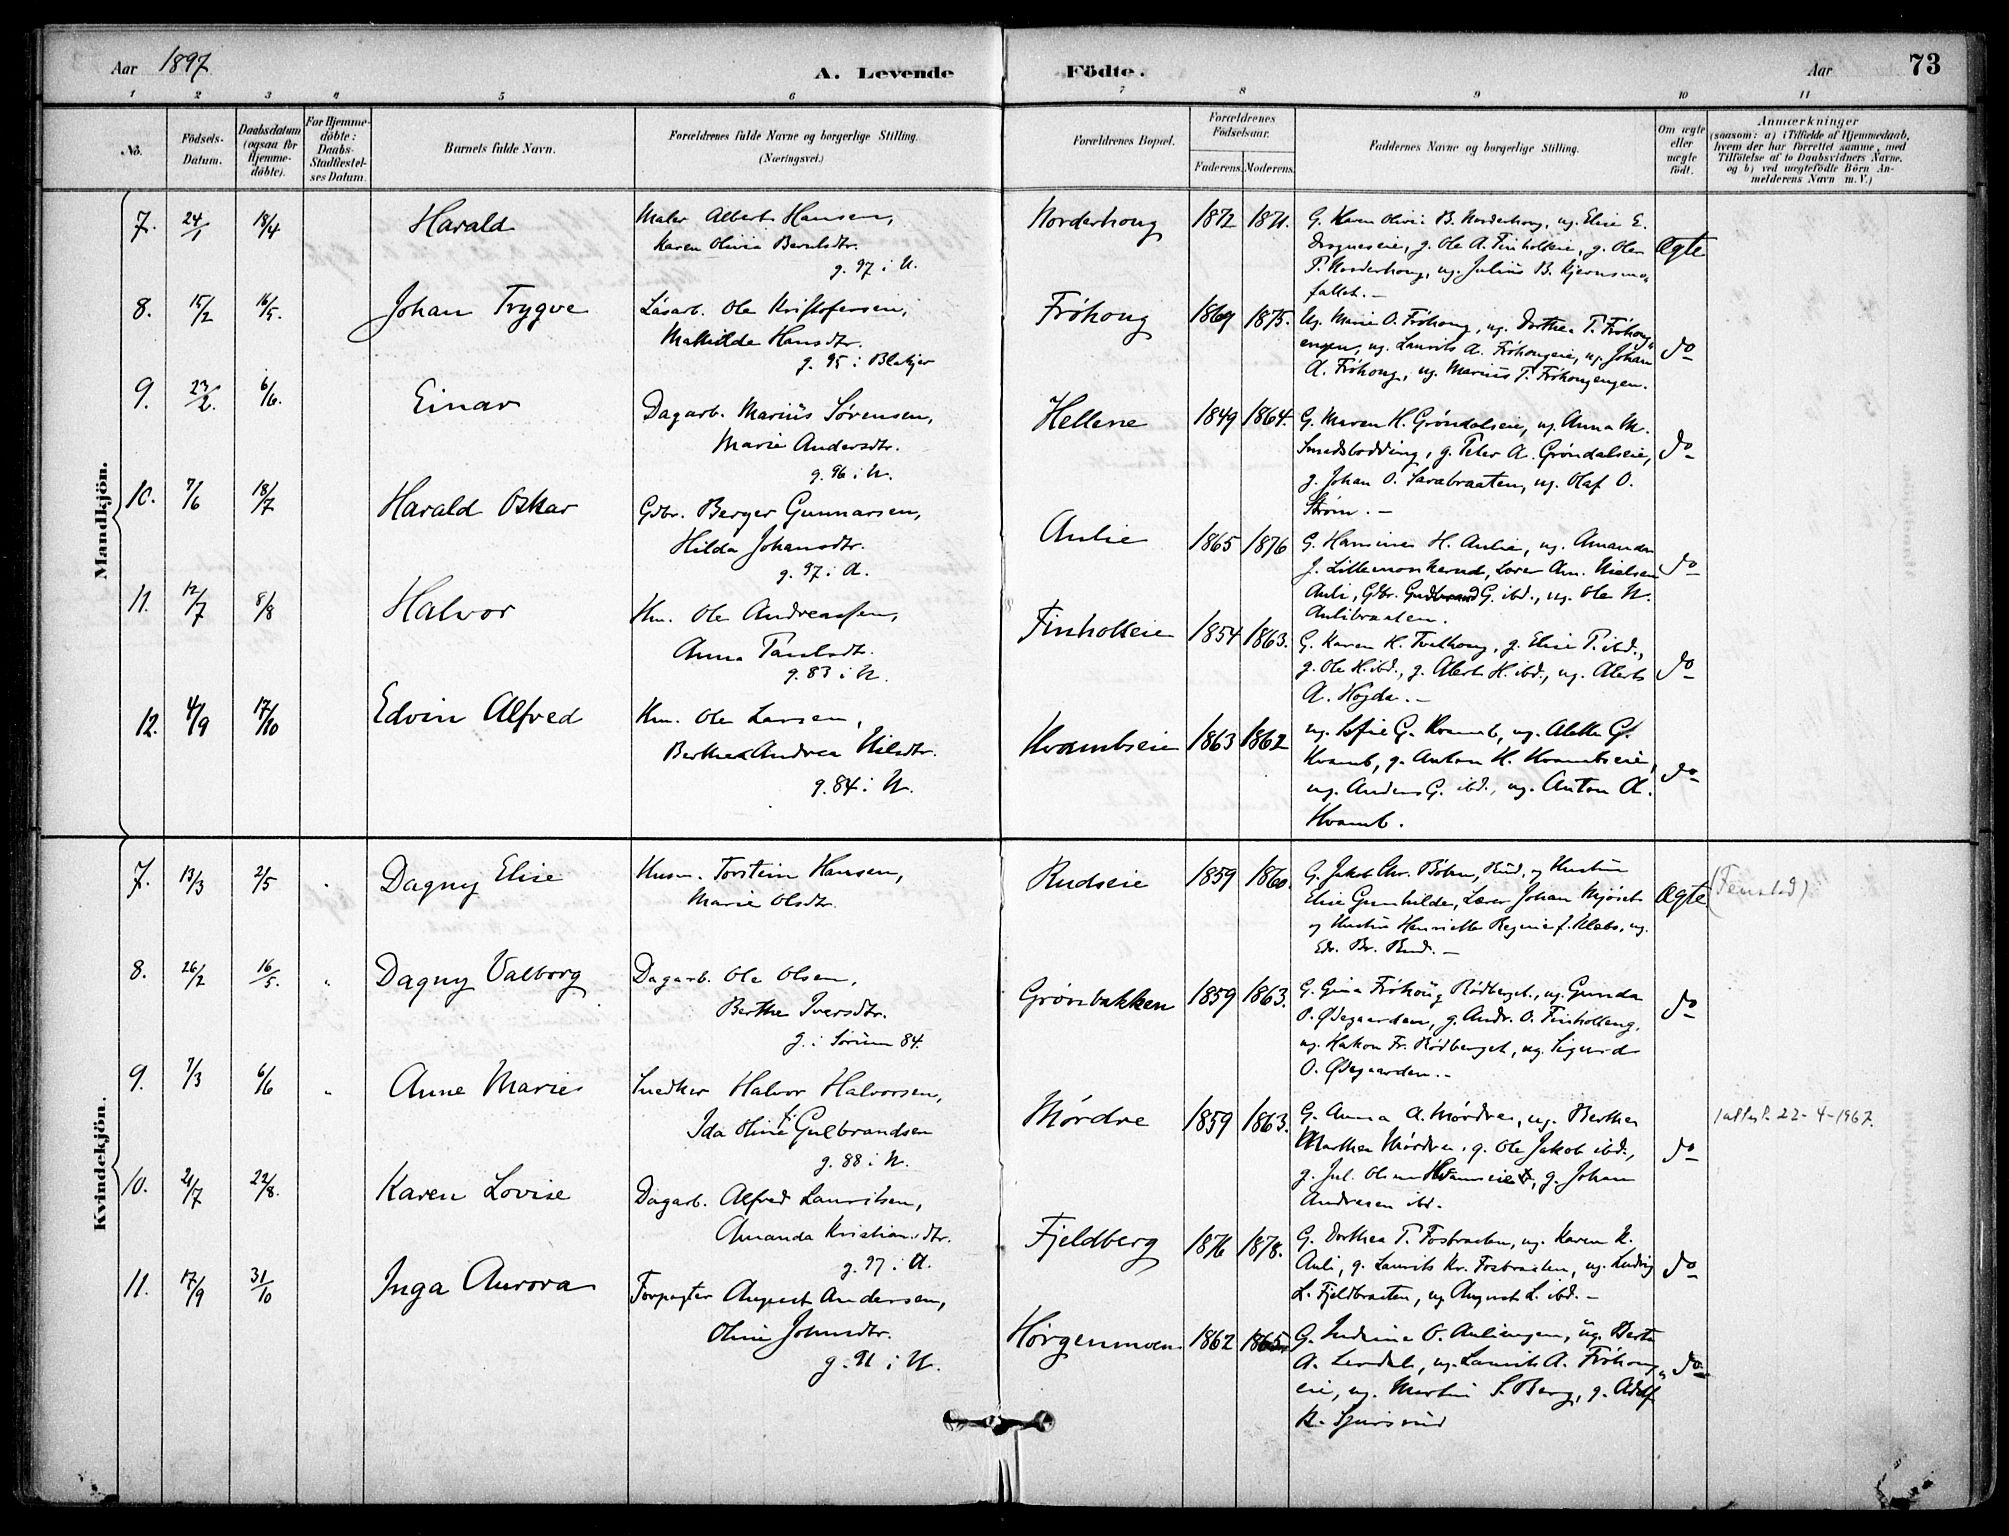 Aar 1897 A. Levende Födte. Aar 73
1 2 3 4 5 6 7 8 9 10 11
No. Födsels-Datum. Daabsdatum (ogsaa for Hjemme-döbte). For Hjemme-döbte: Daabs-Stadfæstel-ses Datum. Barnets fulde Navn. Forældrenes fulde Navne og borgerlige Stilling. (Næringsvei.) Forældrenes Bopæl. Forældrenes Födselsaar. Faderens. Moderens. Faddernes Navne og borgerlige Stilling. Om ægte eller uægte født. Anmærkninger (saasom: a) i Tilfælde af Hjemmedaab, hvem der har forrettet samme, med Tilföielse af to Daabsvidners Navne, og b) ved uægtefödte Börn An-melderens Navn m. V.)
Mandkjön.
7. 24/1 18/4 Harald Maler Albert Hansen, Norderhoug 1872 1871. G. Karen Olivie B. Norderhoug, ug. Elise E.
Karen Olivia Berntsdtr. g. Ole A. Finholteie, g. Ole Ægte
g. 97 i N. P. Norderhoug, ug. Julius B. Kjernsmo-
fallet. -
8. 15/2 16/5. Johan Trygve Løsarb. Ole Kristofersen, Frøhoug 1869 1875. Ug. Marie O. Frøhoug, ug. Dorthea T. Frøhoug-
Mathilde Hansdtr. engen, ug. Laurits A. Frøhougeie, ug. Johan do
g. 95 i Blakjer A. Frøhoug, ug. Marius T. Frøhougengen.
9. 23/2. 6/6. Einar Dagarb. Marius Sørensen, Hellene 1849 1864. G. Maren H. Grøndalseie, ug. Anna M.
Marie Andersdtr. Smedsbodding, g. Peter A. Grøndalseie, do
g. 96 i N. g. Johan O. Sarabraaten, ug. Olaf O.
Strøm. -
10. 7/6 18/7 Harald Oskar Gdbr. Berger Gunnarsen, Aulie 1865 1876 G. Hansine H. Aulie, ug. Amanda
Hilda Johansdtr. J. Lillemonkerud, Lærer Am. Nielsen do
g. 97 i A. Auli, Gdbr. Gudbrand G. ibd., ug. Ole N.
Aulibraaten.
11. 12/7 8/8 Halvor Hm. Ole Andreassen, Finholteie 1854 1863. G. Karen H. Tvethoug, g. Elise P. ibd.,
Anna Paulsdtr. g. Ole H. ibd., g. Albert H. ibd., ug. Alberts do
g. 83 i N. A. Hogda. -
12. 4/9 17/10 Edvin Alfred Hm. Ole Larsen, Hvambseie 1863 1862 ug. Sofie G. Hvamb, ug. Alette G.
Berthea Andrea Nilsdtr. Hvamb, g. Anton H. Hvambseie, do
g. 84 i N. ug. Anders G. ibd., ug. Anton A.
Hvamb.
Kvindekjön.
7. 13/3 2/5 Dagny Elise Husm. Torstein Hansen, Rudseie 1859 1860. G. Jakob Chr. Bøhn, Rud, og Hustru
Marie Olsdtr. Elise Gunhilde, Lærer Johan Mjøset Ægte (Fenstad)
og Hustru Henriette Regine f. Klebo, ug.
Edv. Br. Rud. -
8. 26/2 16/5. Dagny Valborg Dagarb. Ole Olsen, Grønbakken 1859 1863. G. Gina Frøhoug Rødberget, ug. Gunda
Berthe Iversdtr. P. Ødegaarden, g. Andr. O. Finholteng, do
g. i Sørum 84. ug. Hakon Fr. Rødberget, ug. Sigurd
O. Ødegaarden. -
9. 7/3 6/6 Anne Marie Snedker Halvor Halvorsen, Mørdre 1859 1863. G. Anna A. Mørdre, ug. Berthe 22-4-1967.
Ida Oline f. Gulbrandsen Marthea Mørdre, g. Ole Jakob ibd., do
g. 88 i N. g. Jul. Olsen , g. Johan
Andresen ibd.
10. 21/7 22/8. Karen Lovise Dagarb. Alfred Lauritsen, Fjeldberg 1876 1878. G. Dorthea T. Fosbraaten, ug. Karen K.
Amanda Kristiansdtr. Auli, g. Laurits Kr. Fosbraaten, ug. Ludvig do
g. 97 i A. L. Fjeldbraaten, ug. August L. ibd. -
11. 17/9 31/10 Inga Aurora Forpagter August Andersen, Hørgenmoen 1862 1865. G. Indiana O. Auliengen, ug. Berte
Oline Johnsdtr. A. , ug. Laurits A. Frøhoug- do
g. 91 i N. eie, ug. Martin S. Berg, g. Adolf
K. Sjursrud